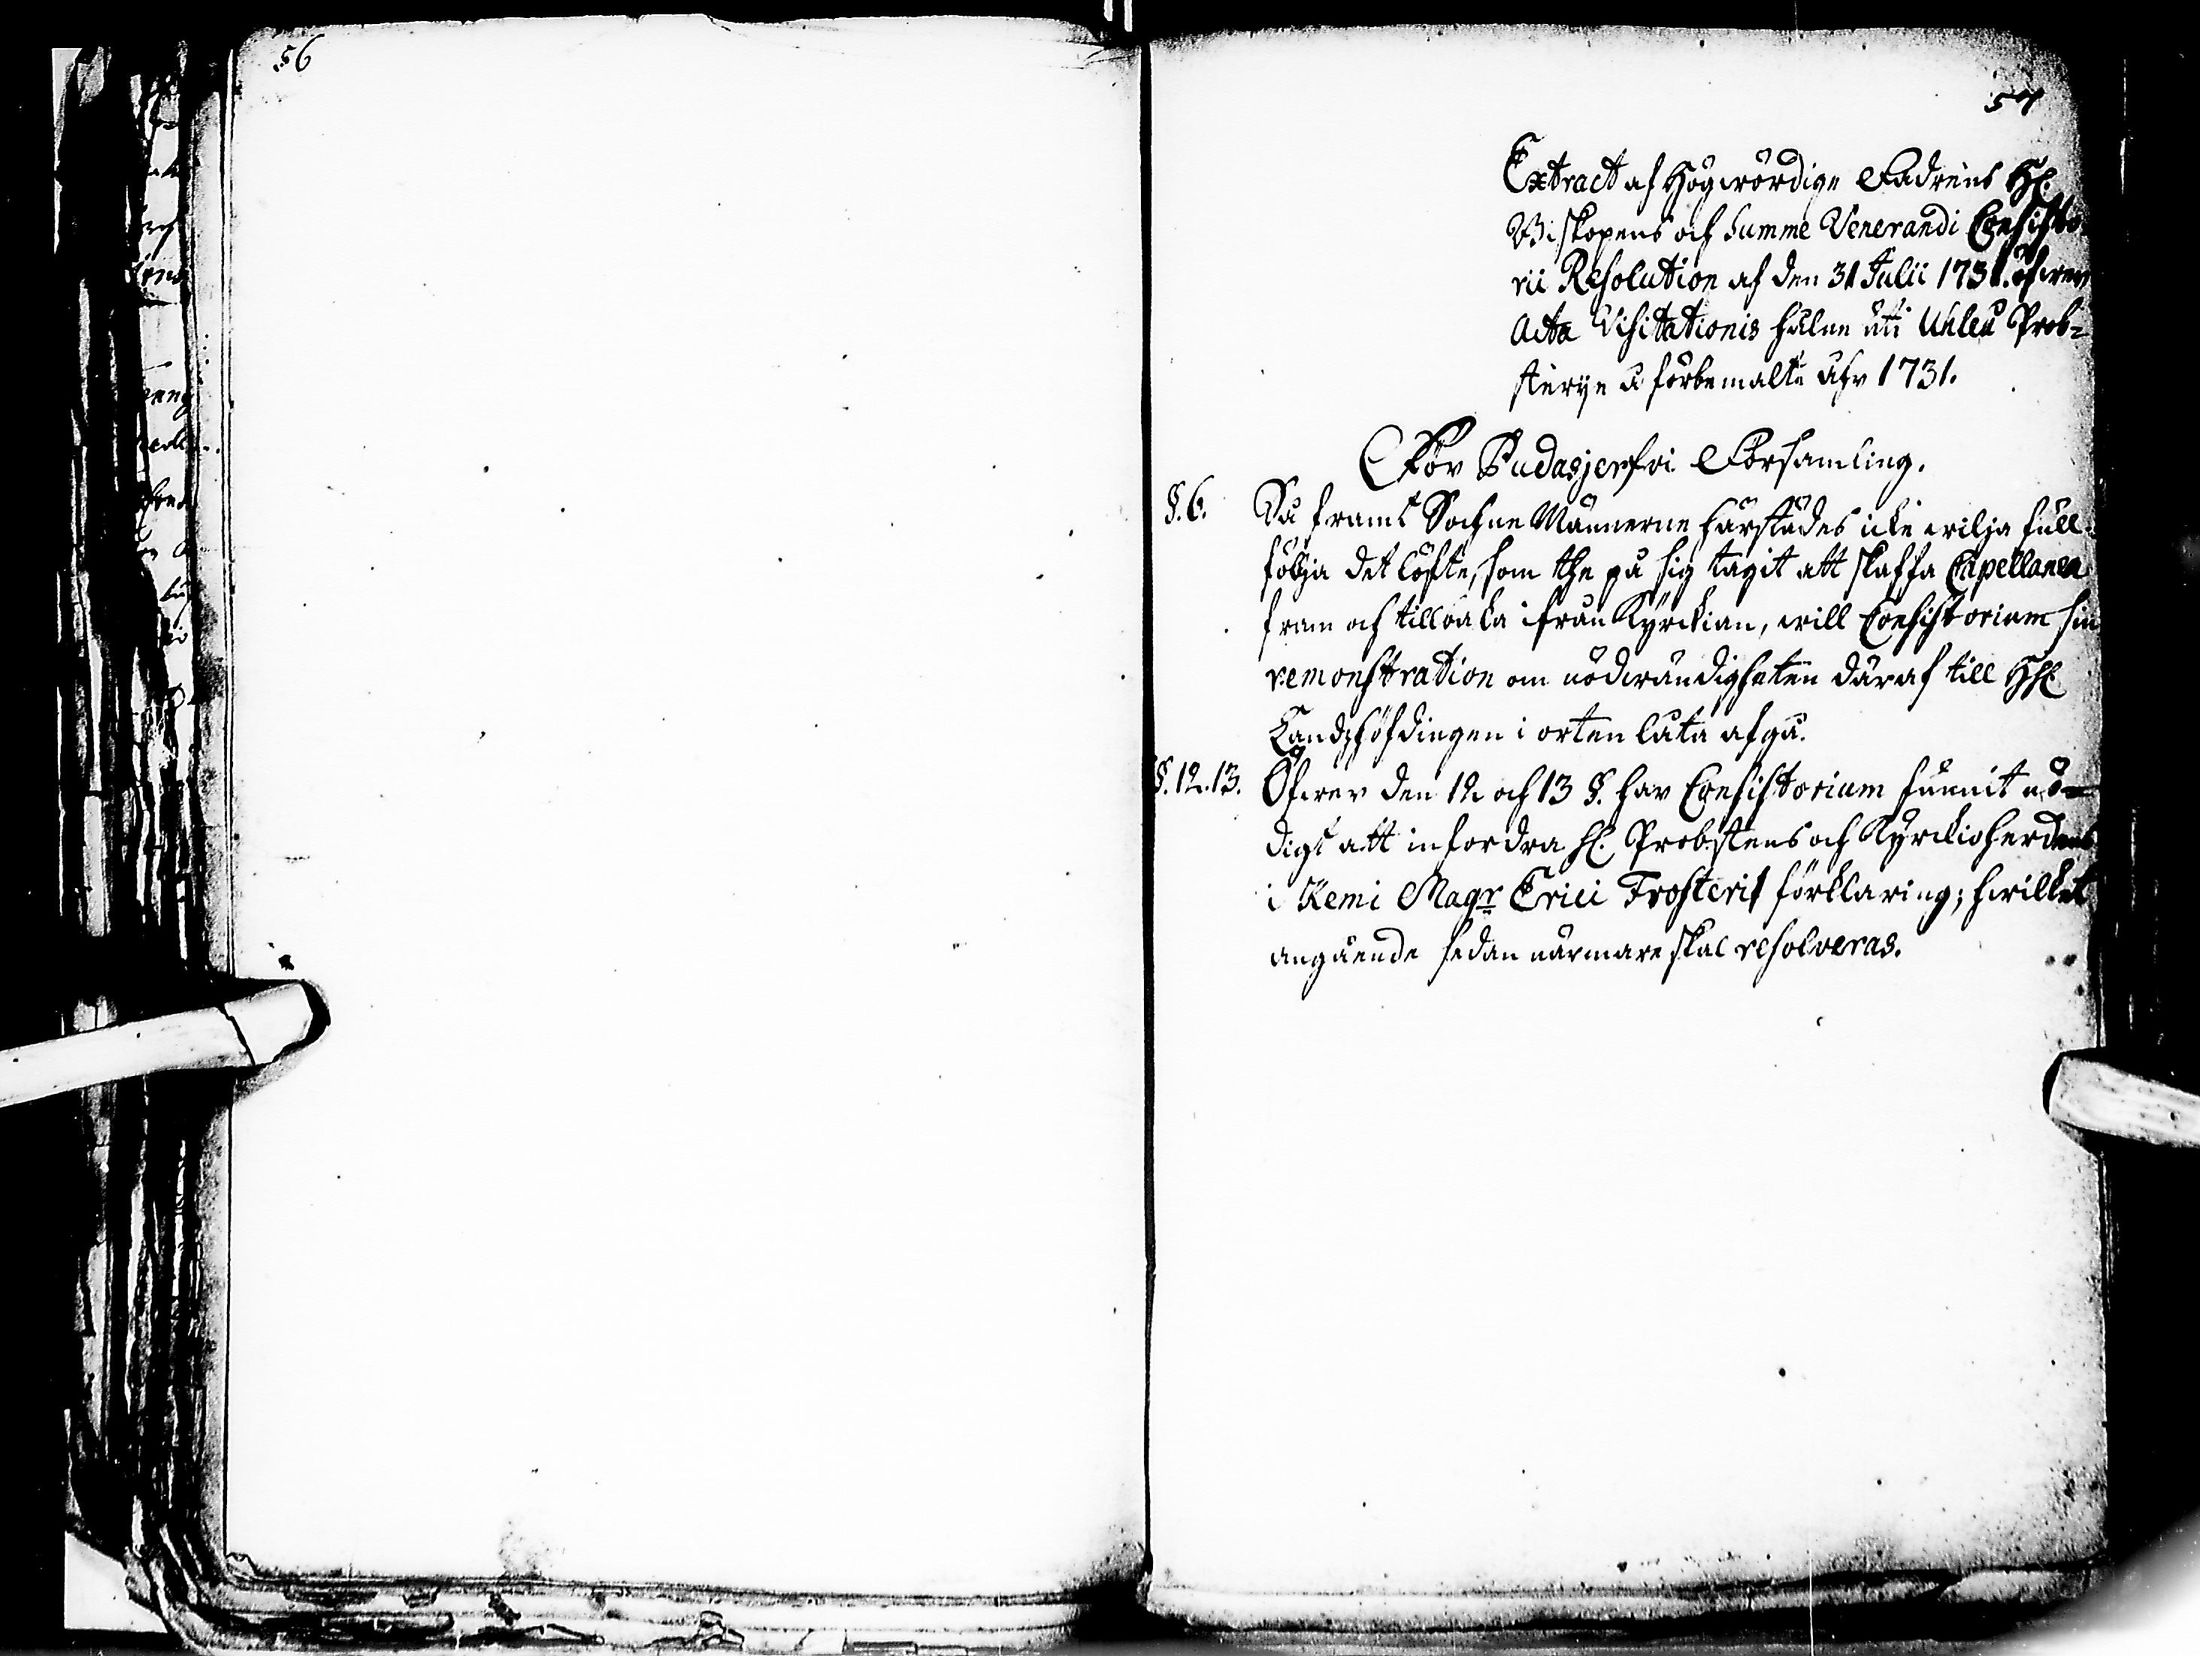 56
57
Extract af Högwördige Fadrens H:
Biskopens och Summe Venerandi Consisto
rii Resolution af den 31 Julii 1731. öfwer
Acta Visitationis hålne uti Uhleå Prob=
sterije å förbemalte åhr 1731.
För Pudasjerfvi Församling.
§. 6. Så framt Sochne Männerne härstädes icke wilja full=
följa det löfte, som the på sig tagit att skaffa Capellanen
fram och tillbaka ifrån Kyrckian, will Consistorium sin
remonstration om nödwändigheten däraf till HH:
Landzhöfdingen i orten låta afgå.
§. 12. 13. Öfwer den 12 och 13 §. har Consistorium funnit nö=
digt att infordra H. Probstens och Kyrckioherdens
i Kemi Magr Erici Frosterii förklaring; hwilket
angående sedan närmare skal resolveras.